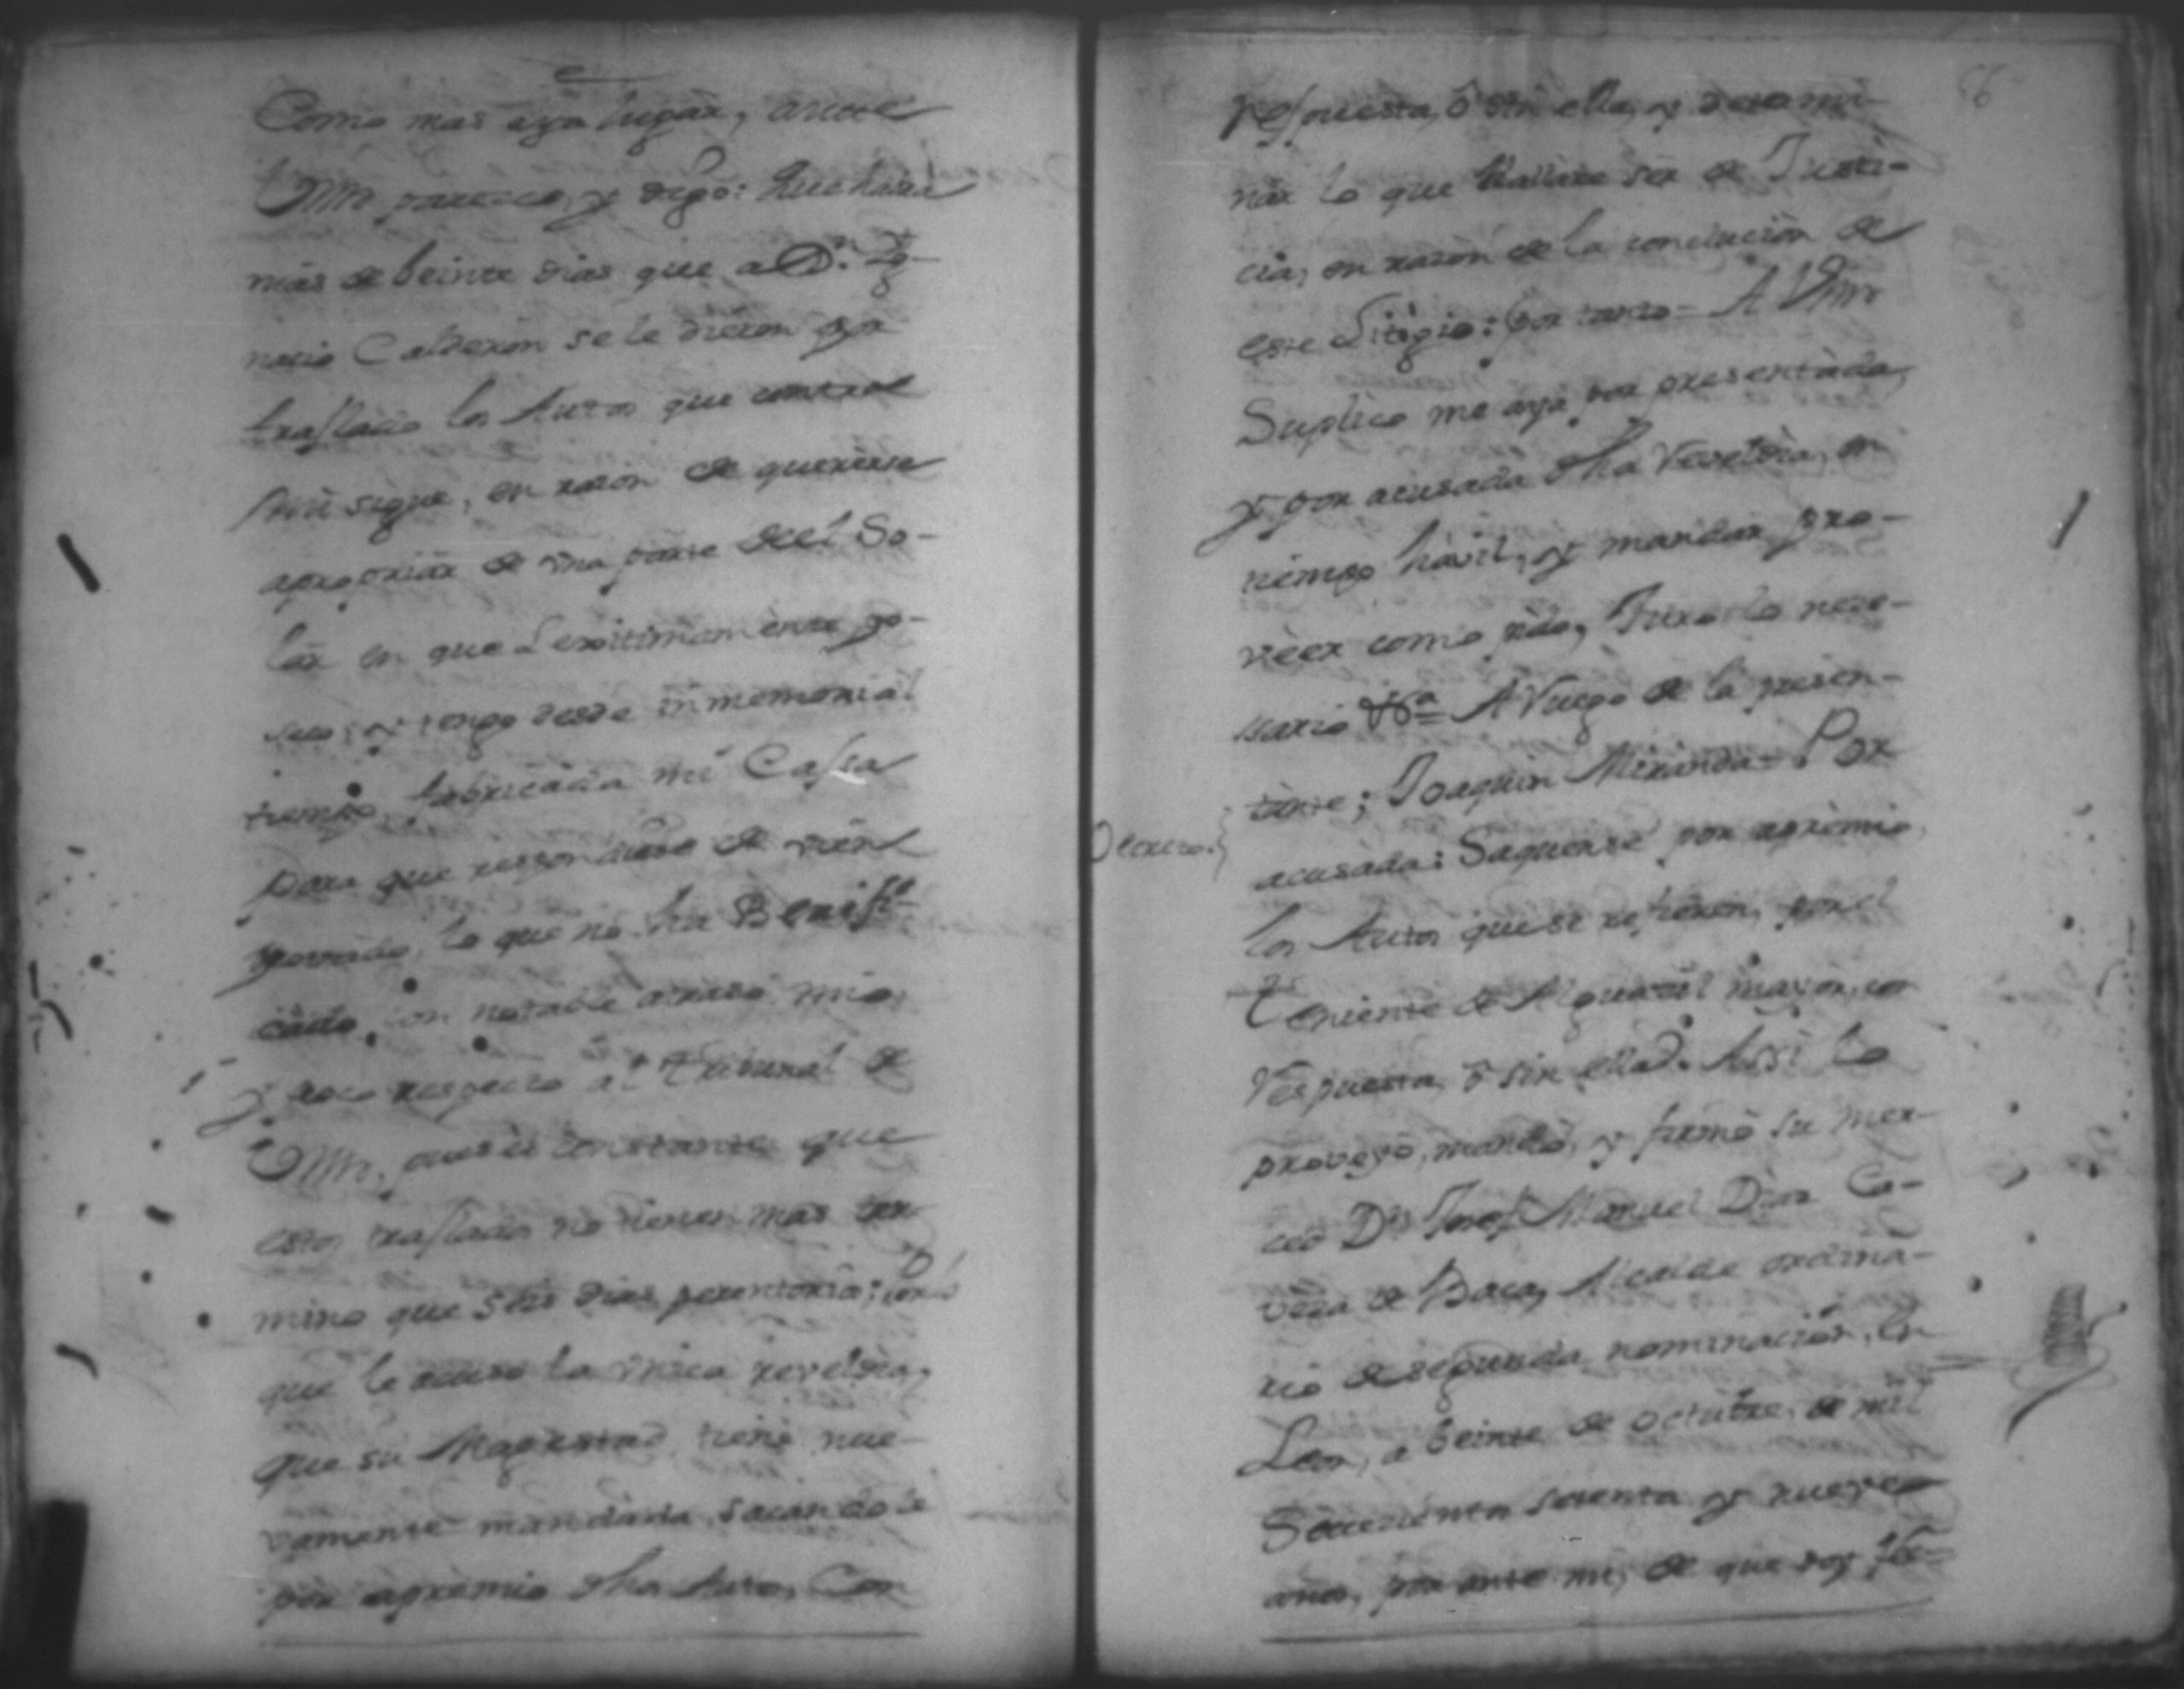 Como mas aya lugar, ante
Vmr parezco, y digo: que hara
mas de beinte dias que a Dn. Yg-
nacio Calderon se le dieron por
traslado los Autos que contra
mi sigue, en razon de quererse
apropriar de una parte deel So-
lar en que Lexitimamente po-
seo, y tengo desde inmemorial
tiempo, fabricada mi Cassa
para que respondiese de
lo que no ha Benefi-
ciado, con notable atraso mio,
y poco respecto al tribunal de
Vmr, pues es constante que
estos traslados no tienen mas ter-
mino que seis dias perentorios;
que le acuso la unica reveldia,
que su Magestad tiene nue-
vamente mandada, sacandole
por apremio dhos Autos, Con
56
respuesta, ô sin ella, y determi-
nar lo que hallare ser de Justi-
cia, en razon de la conclucion de
este Litigio: por tanto = A Vmr
Suplico me aya por presentada,
y por acusada dha Reveldia, en
tiempo havil, y mandar pro-
veer como pido, Juro lo nece-
sario Vta = A Ruego de la presen-
tante; Joaquin Miranda = Por
Decreto.
acusada: Saquense por apremio
los Autos que se refieren, por el
Teniente de Alguazil mayor, con
respuesta, ô sin ella. Assi lo
proveyó, mandó, y firmó su mer-
ced Dn Josef Manuel Diaz Ca-
veza de Baca, Alcalde ordina-
rio de segunda nominacion, en
Leon, a beinte de octubre, de mil
Setecientos setenta y nueve
años, por ante mi, de que doy fee =